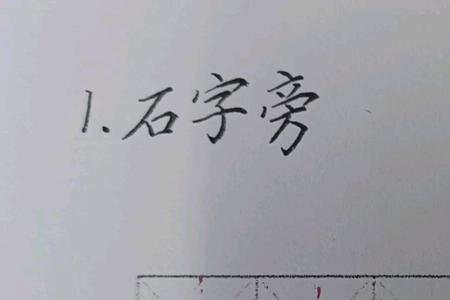 1.石字旁